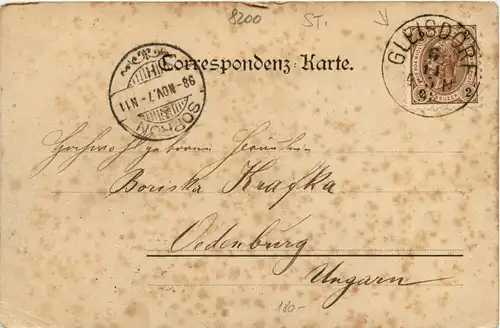 8200 ST.
Correspondenz-Karte.
GLEISDORF
2 2
SOPRON
98-NOV.7-N11
Hochwohlgeboren Fräulein
Boriska Krafka
Oedenburg
Ungarn
180-